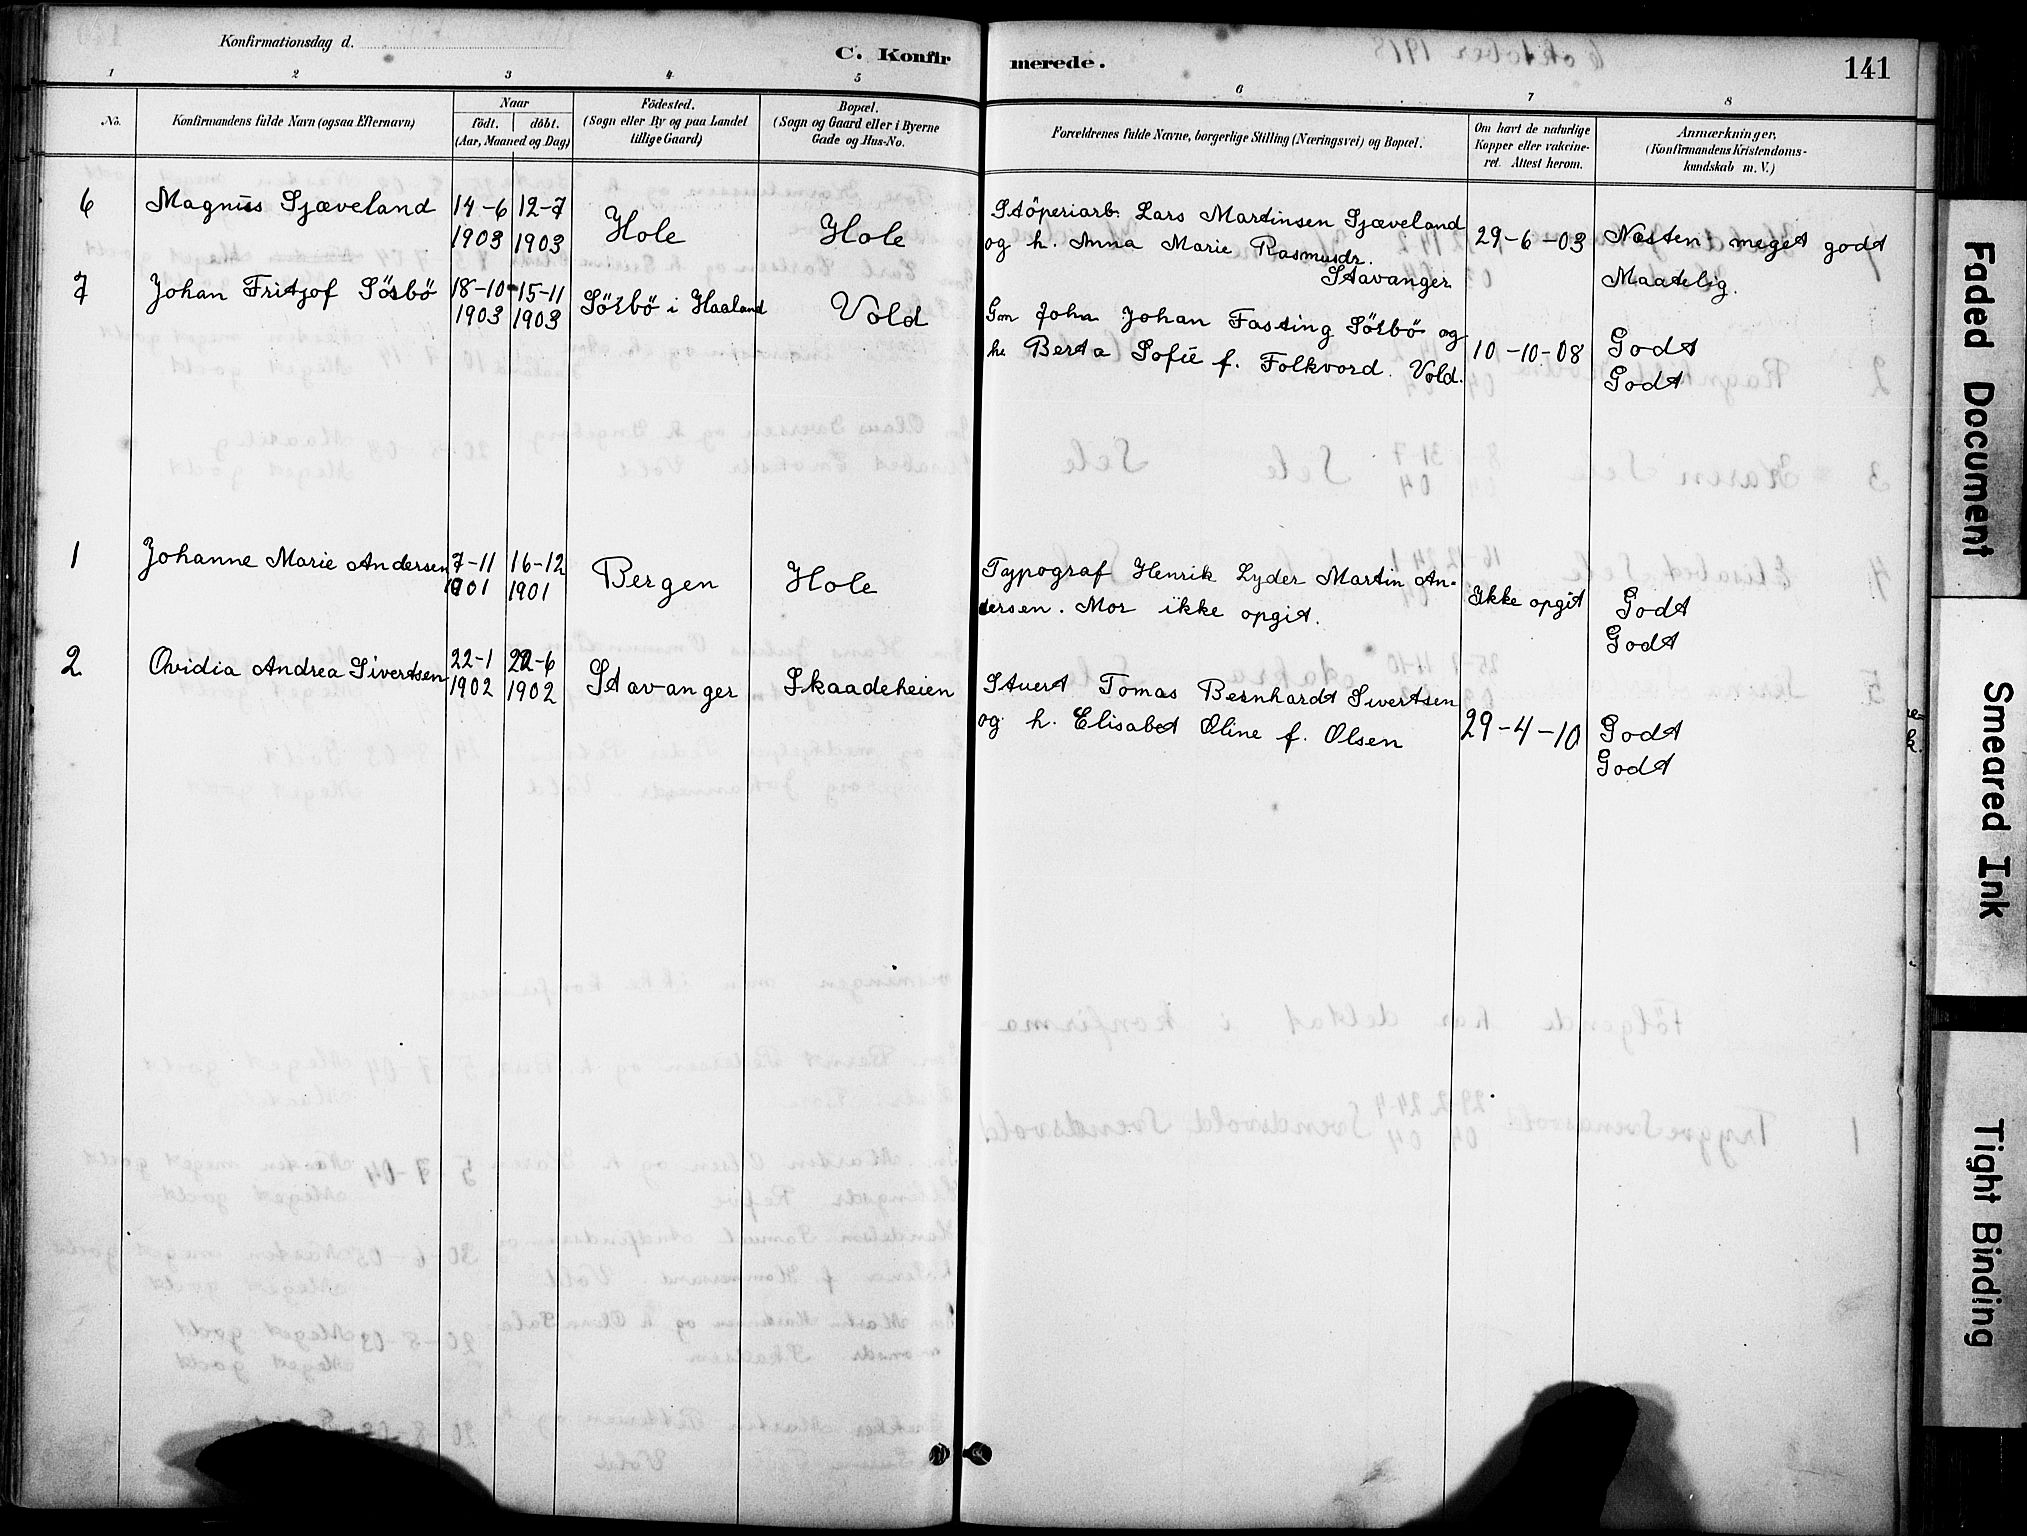 Konfirmationsdag d.
C. Konfirmerede.
141
1 2 3 4 5 6 7 8
No.
Konfirmandens fulde Navn (ogsaa Efternavn)
Naar
födt. döbt.
(Aar, Maaned og Dag)
Födested.
(Sogn eller By og paa Landet
tillige Gaard)
Bopæl.
(Sogn og Gaard eller i Byerne
Gade og Hus-No.
Forældrenes fulde Navne, borgerlige Stilling (Næringsvei) og Bopæl.
Om havt de naturlige
Kopper eller vakcine-
ret. Attest herom.
Anmærkninger.
(Konfirmandens Kristendoms-
kundskab m. V.)
6 Magnus Sjæveland 14-6 1903 12-7 1903 Hole Hole
Stöperiarb. Lars Martinsen Sjæveland
og h. Anna Marie Rasmusdr.
Stavanger
29-6-03
Næsten meget godt
Maatelig.
7 Johan Fritjof Sörbö 18-10 1903 15-11 1903 Sörbö i Haaland Vold
Gm Johan Johan Fasting Sörbö og
h. Berta Sofie f. Folkvord. Vold.
10-10-08
Godt
Godt
1 Johanne Marie Andersen 7-11 1901 16-12 1901 Bergen Hole
Typograf Henrik Lyder Martin An-
dersen. Mor ikke opgit.
Ikke opgit
Godt
Godt
2 Ovidia Andrea Sivertsen 22-1 1902 22-6 1902 Stavanger Skaadeheien
Stuert Tomas Bernhardt Sivertsen
og h. Elisabet Oline f. Olsen
29-4-10
Godt
Godt
Faded Document
Smeared Ink
Tight Binding